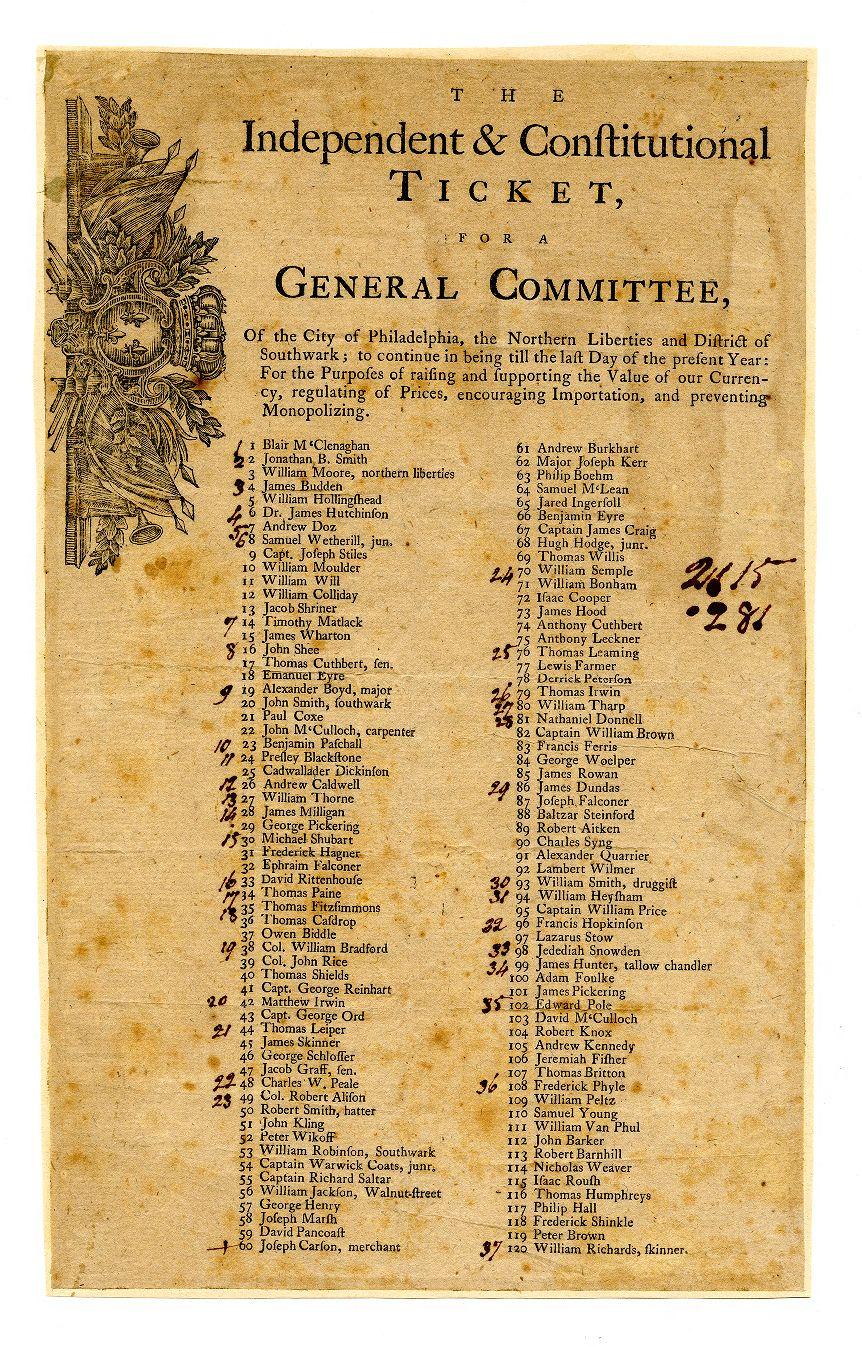 THE
Independent & Conſtitutional
TICKET,
FOR A
GENERAL COMMITTEE,
Of the City of Philadelphia, the Northern Liberties and Diſtrict of
Southwark; to continue in being till the laſt Day of the preſent Year:
For the Purpoſes of raiſing and ſupporting the Value of our Curren-
cy, regulating of Prices, encouraging Importation, and preventing
Monopolizing.
1 1 Blair M‘Clenaghan
2 2 Jonathan B. Smith
3 William Moore, northern liberties
3 4 James Budden
5 William Hollingſhead
4 6 Dr. James Hutchinſon
5 7 Andrew Doz
6 8 Samuel Wetherill, jun.
9 Capt. Joſeph Stiles
10 William Moulder
11 William Will
12 William Colliday
13 Jacob Shriner
7 14 Timothy Matlack
15 James Wharton
8 16 John Shee
17 Thomas Cuthbert, ſen.
18 Emanuel Eyre
9 19 Alexander Boyd, major
20 John Smith, ſouthwark
21 Paul Coxe
22 John M‘Culloch, carpenter
10 23 Benjamin Paſchall
11 24 Preſley Blackſtone
25 Cadwallader Dickinſon
12 26 Andrew Caldwell
13 27 William Thorne
14 28 James Milligan
29 George Pickering
15 30 Michael Shubart
31 Frederick Hagner
32 Ephraim Falconer
16 33 David Rittenhouſe
17 34 Thomas Paine
18 35 Thomas Fitzſimmons
36 Thomas Caſdrop
37 Owen Biddle
19 38 Col. William Bradford
39 Col. John Rice
40 Thomas Shields
41 Capt. George Reinhart
20 42 Matthew Irwin
43 Capt. George Ord
21 44 Thomas Leiper
45 James Skinner
46 George Schloſſer
47 Jacob Graff, ſen.
22 48 Charles W. Peale
23 49 Col. Robert Aliſon
50 Robert Smith, hatter
51 John Kling
52 Peter Wikoff
53 William Robinſon, Southwark
54 Captain Warwick Coats, junr.
55 Captain Richard Saltar
56 William Jackſon, Walnut-ſtreet
57 George Henry
58 Joſeph Marſh
59 David Pancoaſt
60 Joſeph Carſon, merchant
61 Andrew Burkhart
62 Major Joſeph Kerr
63 Philip Boehm
64 Samuel M‘Lean
65 Jared Ingerſoll
66 Benjamin Eyre
67 Captain James Craig
68 Hugh Hodge, junr.
69 Thomas Willis
24 70 William Semple
71 William Bonham
72 Iſaac Cooper
73 James Hood
74 Anthony Cuthbert
75 Anthony Leckner
25 76 Thomas Leaming
77 Lewis Farmer
78 Derrick Peterſon
26 79 Thomas Irwin
27 80 William Tharp
28 81 Nathaniel Donnell
82 Captain William Brown
83 Francis Ferris
84 George Woelper
85 James Rowan
29 86 James Dundas
87 Joſeph Falconer
88 Baltzar Steinford
89 Robert Aitken
90 Charles Syng
91 Alexander Quarrier
92 Lambert Wilmer
30 93 William Smith, druggiſt
31 94 William Heyſham
95 Captain William Price
32 96 Francis Hopkinſon
97 Lazarus Stow
33 98 Jedediah Snowden
34 99 James Hunter, tallow chandler
100 Adam Foulke
101 James Pickering
35 102 Edward Pole
103 David M‘Culloch
104 Robert Knox
105 Andrew Kennedy
106 Jeremiah Fiſher
107 Thomas Britton
36 108 Frederick Phyle
109 William Peltz
110 Samuel Young
111 William Van Phul
112 John Barker
113 Robert Barnhill
114 Nicholas Weaver
115 Iſaac Rouſh
116 Thomas Humphreys
117 Philip Hall
118 Frederick Shinkle
119 Peter Brown
37 120 William Richards, ſkinner.
281